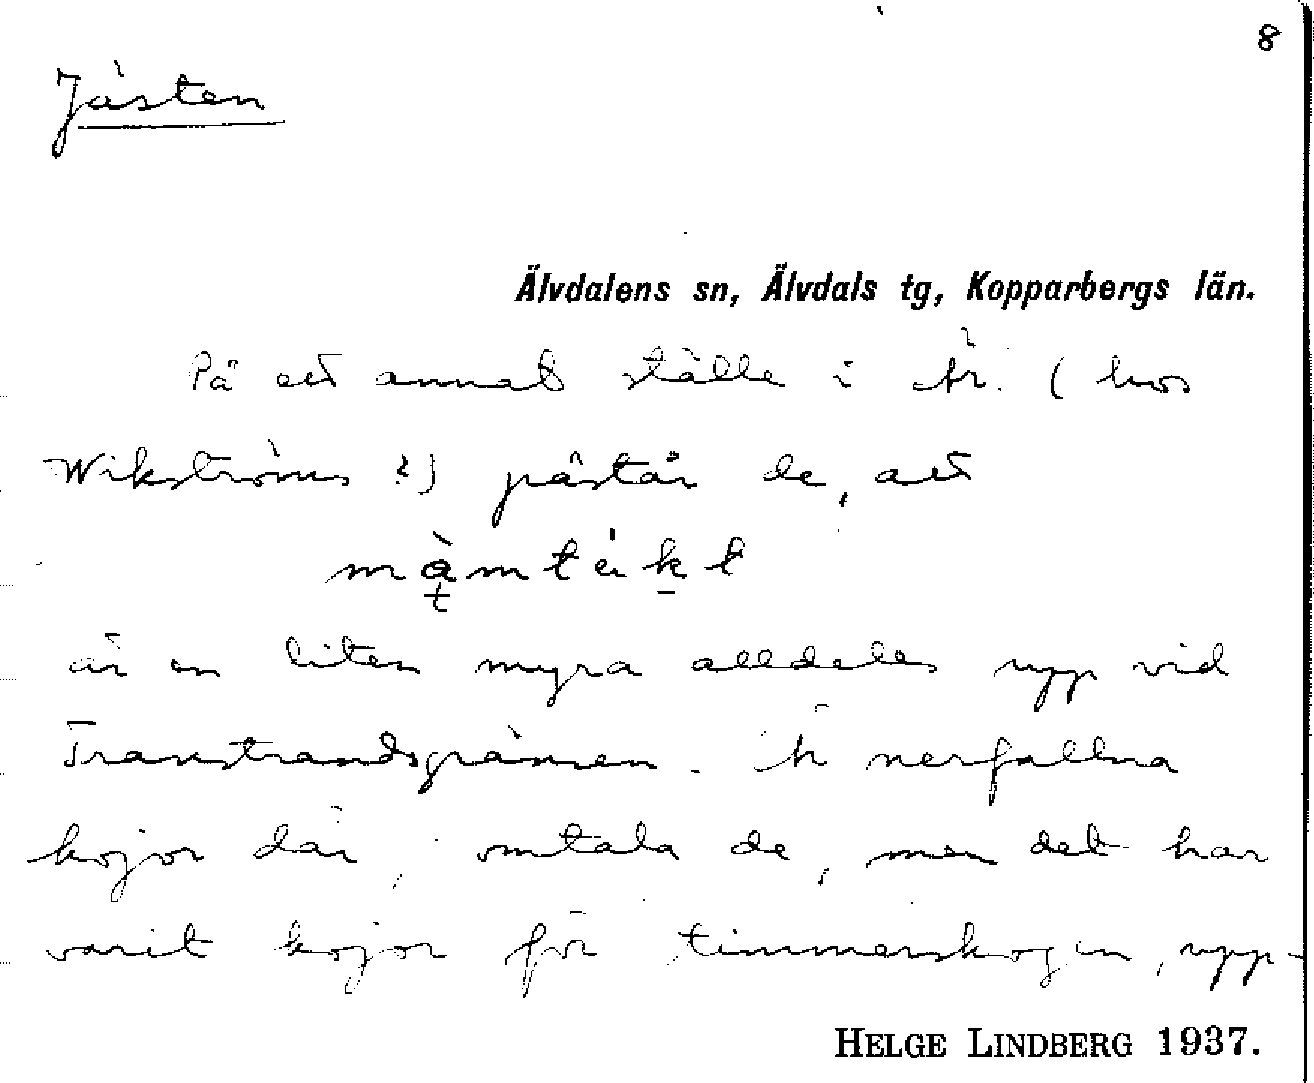 8
Jästen
Älvdalens sn, Älvdals tg, Kopparbergs län.
På ett annat ställe i Är. (hos
Wikströms?) påstår de, att
är en liten myra alldeles upp vid
Transtrandsgränsen. Är nerfallna
kojor där, omtala de, men det har
varit kojor för timmerskogen, upp-
HELGE LINDBERG 1937.